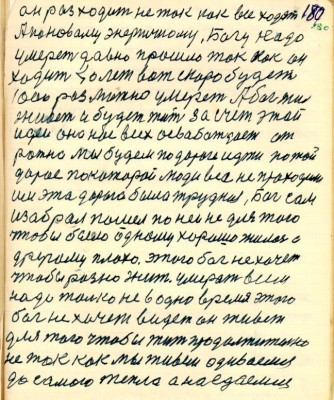 180
он разходит не так как все ходят
Аноновалу энергичному, Богу надо
умерет давно прошло так как он
ходит лет вот скоро будет
1000 раз можно умерет А бог жил
живет и будет жит за счет этой
идеи оно нас всех освабождает от
мы будем по дороге идти по той
дороге по каторой люди все не проходили
им эта дорога была трудная, Бог сам
избрал пошел по ней не для того
чтобы было одному хорошо жилось а
другому плохо. этого бог не хочет
чтобы разно жит. умерат всем
надо только не в одно время этого
бог не хочет видет он живет
для того чтобы жит продолжително
не так как мы живем одиваемся
до самого тепла а наедаемся